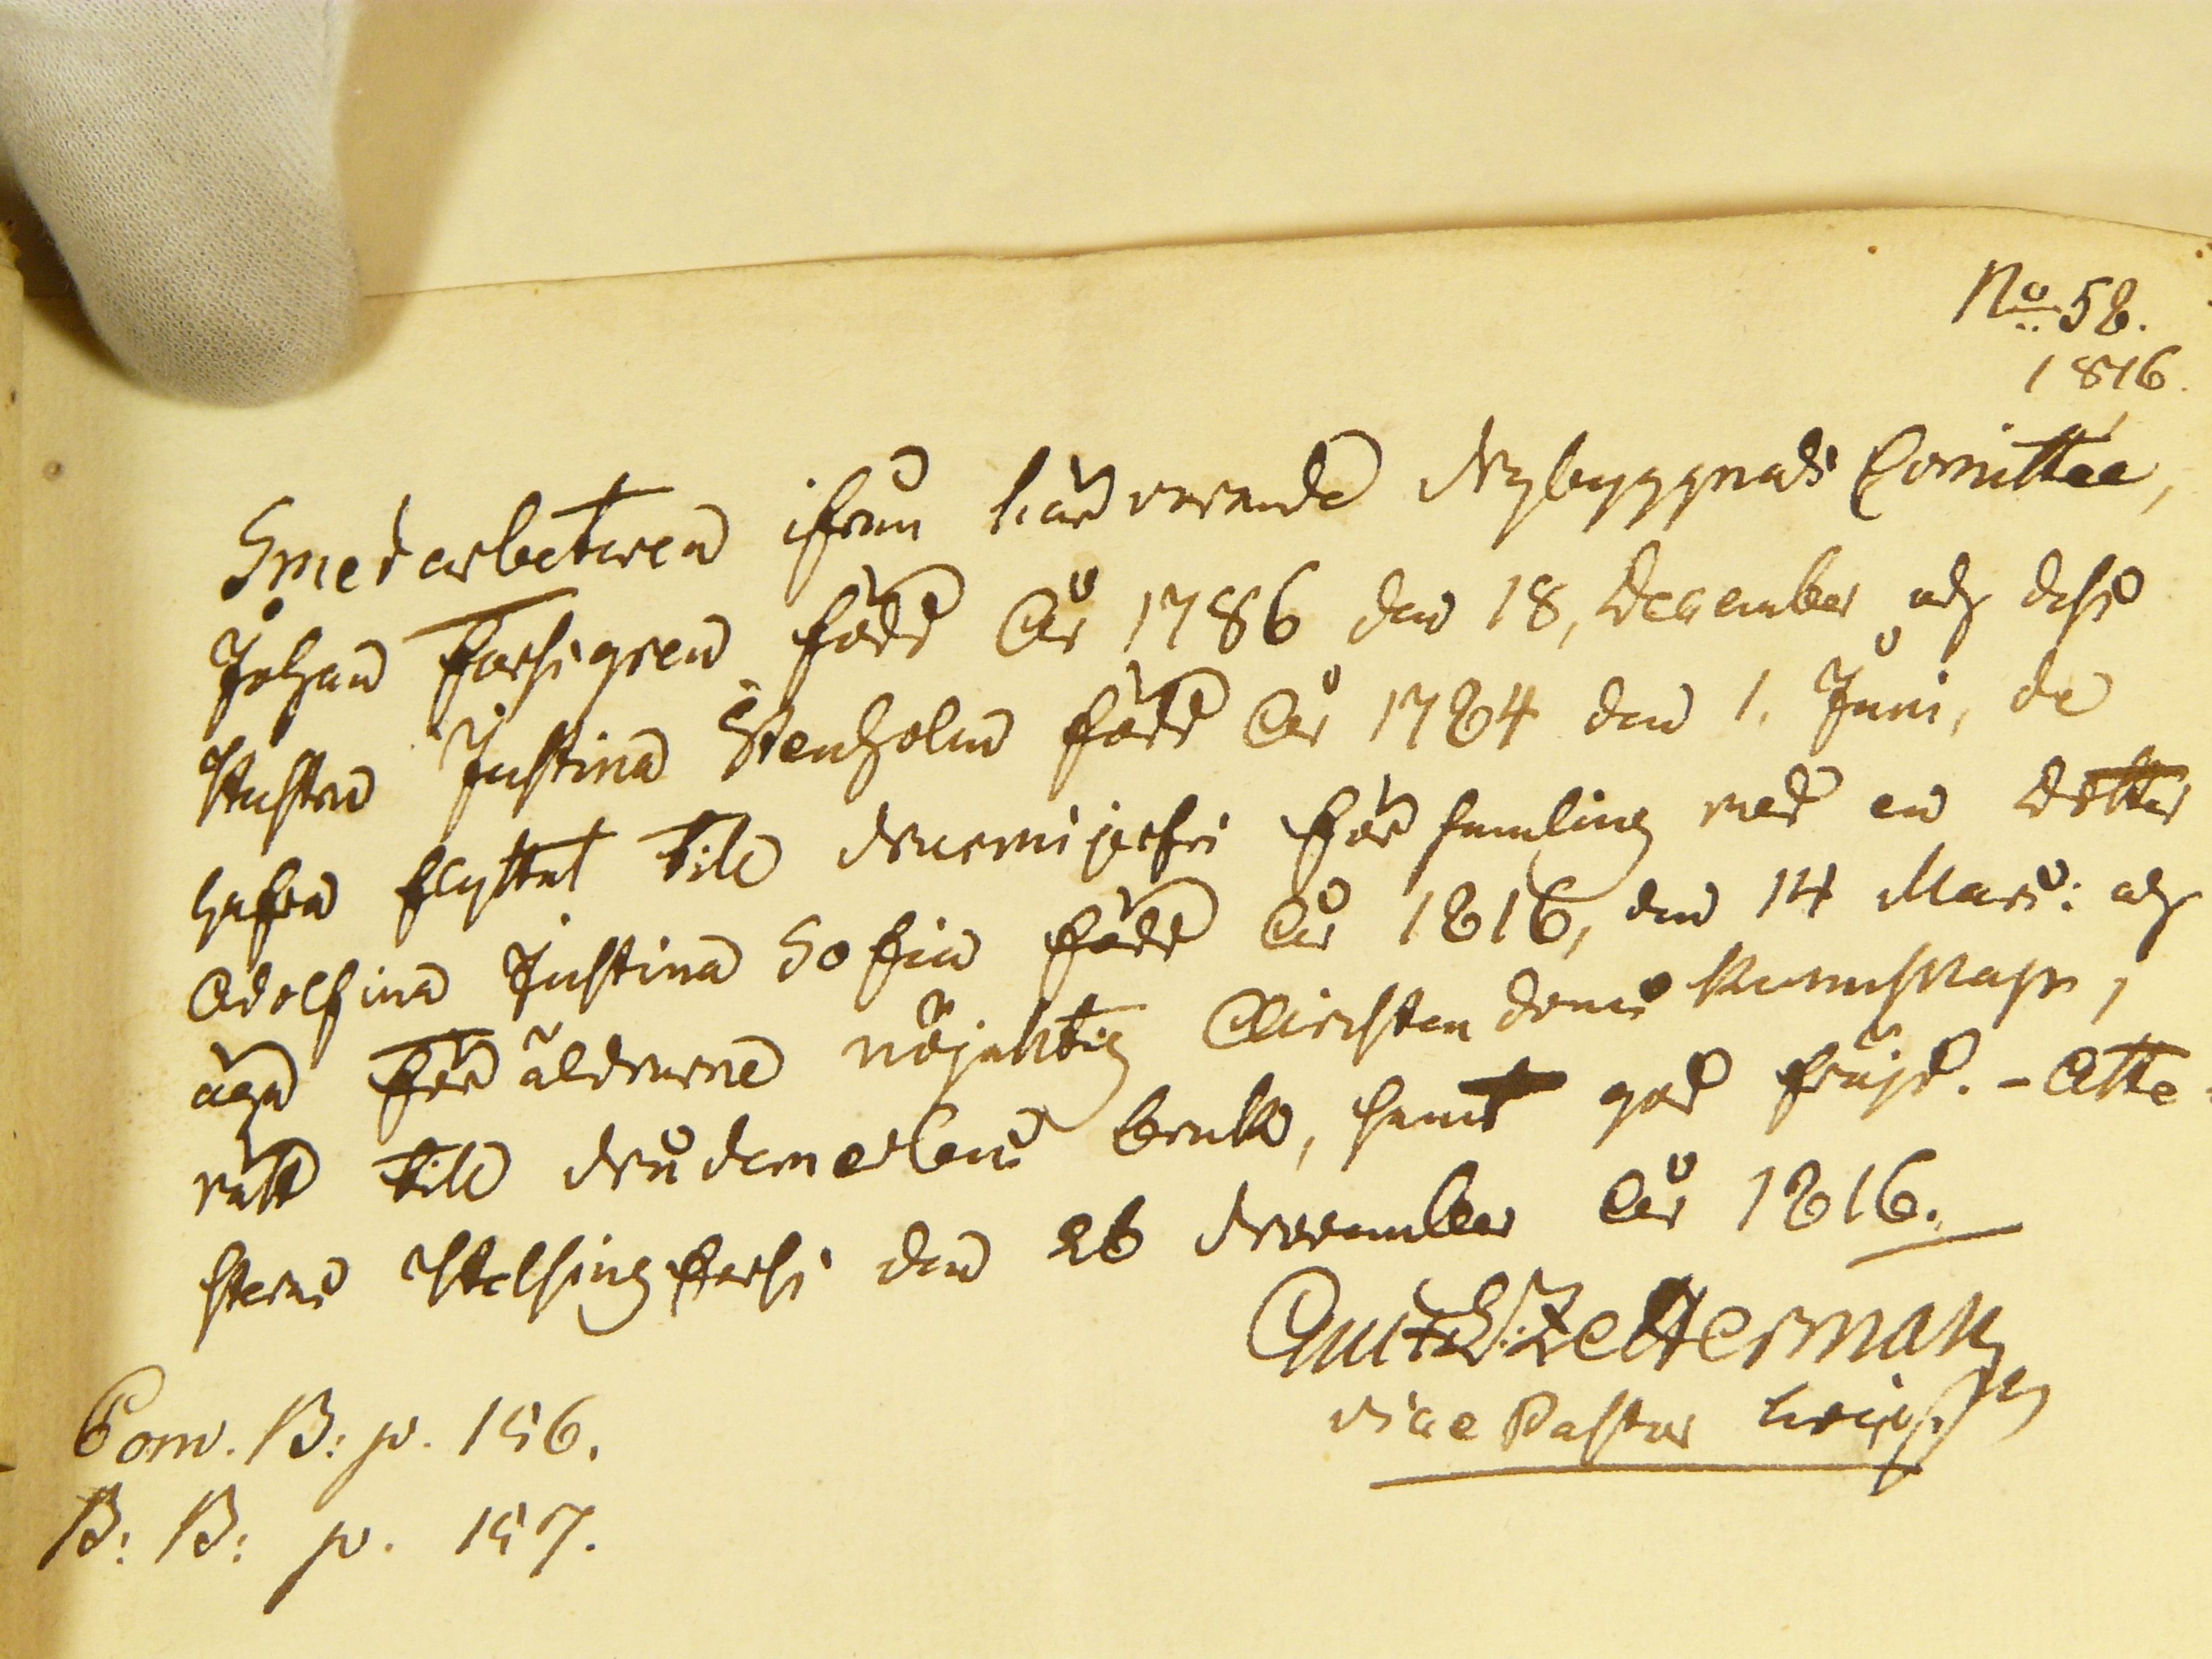 No 58.
1816.
Smedarbetaren ifrån härvarande Nybyggnads Comittée,
Johan Forsgren född År 1786 den 18, December och dess
Hustru Justina Stenholm född År 1784 den 1. Juni, de
hafva flyttat till Nurmijerfvi församling med en Dotter
Adolfina Justina Sofia född År 1816, den 14 Mars: och
äga föräldrarne nöjaktig Christendoms Kunnskap,
rätt till Nådemedlens bruk, samt god fräjd. - Atte-
steras Helsingfors den 26 November År 1816.
Zetterman
vice Pastor
Com. B: p. 156.
B: B: p. 157.